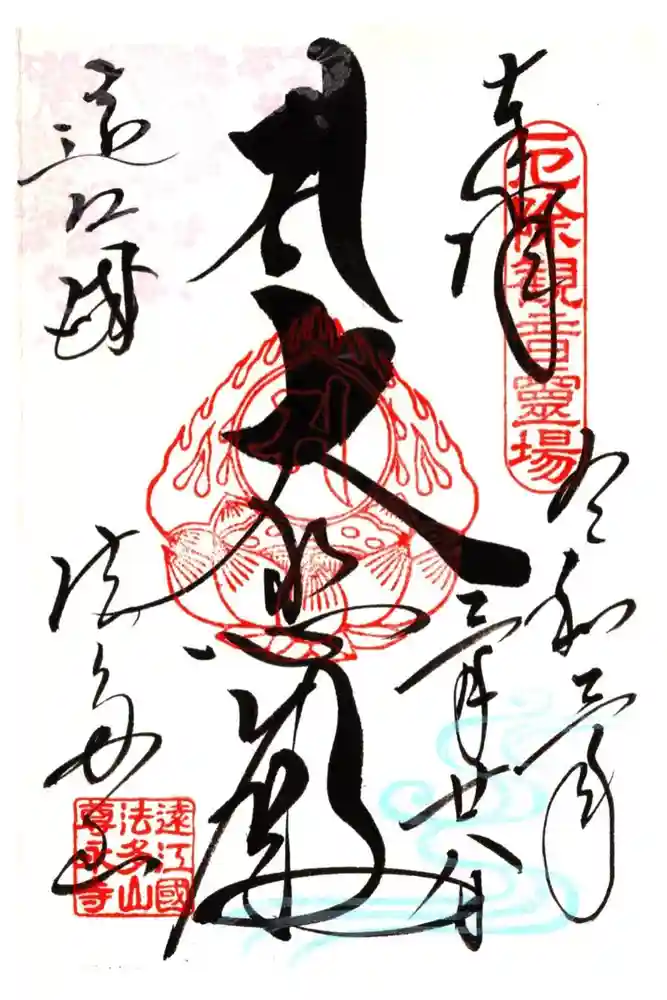 奉拝
厄除観音靈場
令和三年
三月廿八日
大悲
遠江
法多山
遠江國
法多山
尊永寺